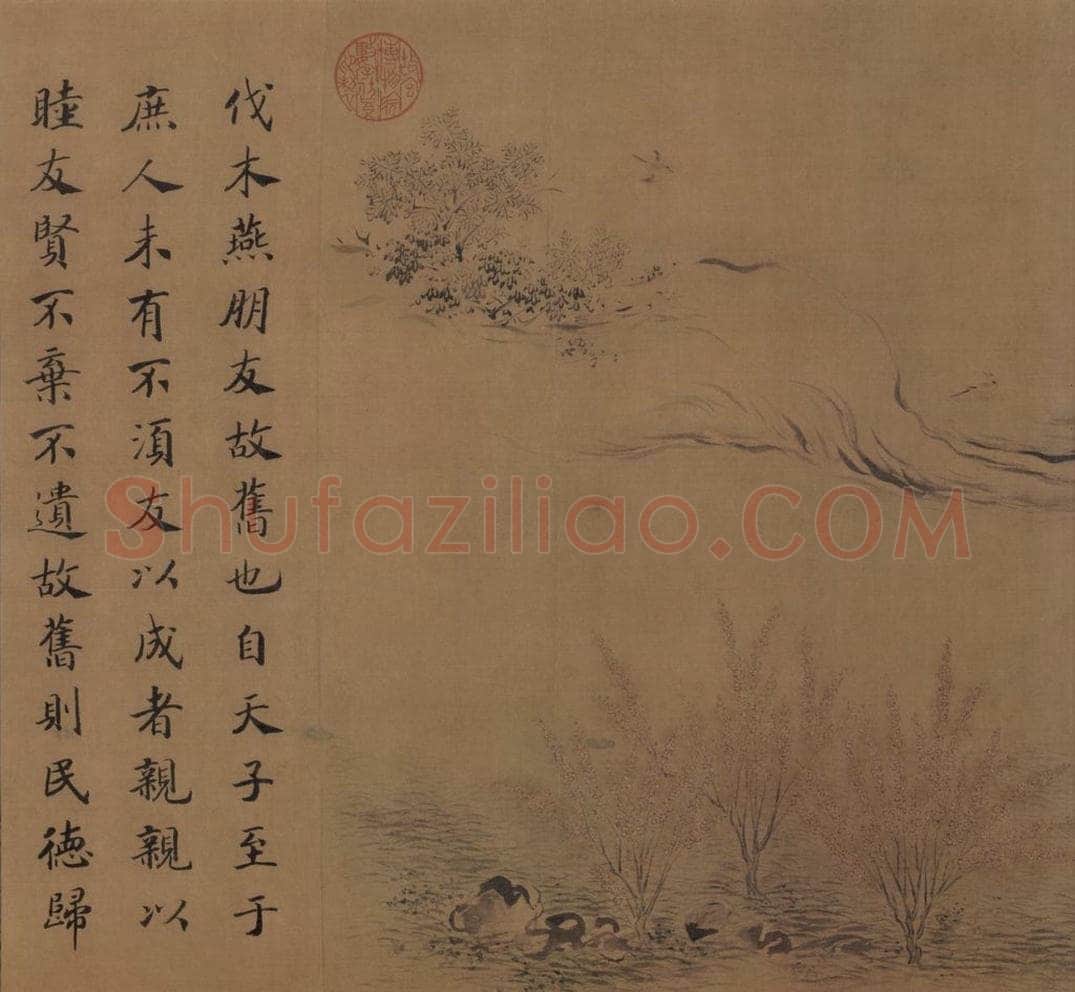 伐木燕朋友故舊也自天子至于
庶人未有不須友以成者親親以
睦友賢不棄不遺故舊則民德歸
Shufaziliao.COM